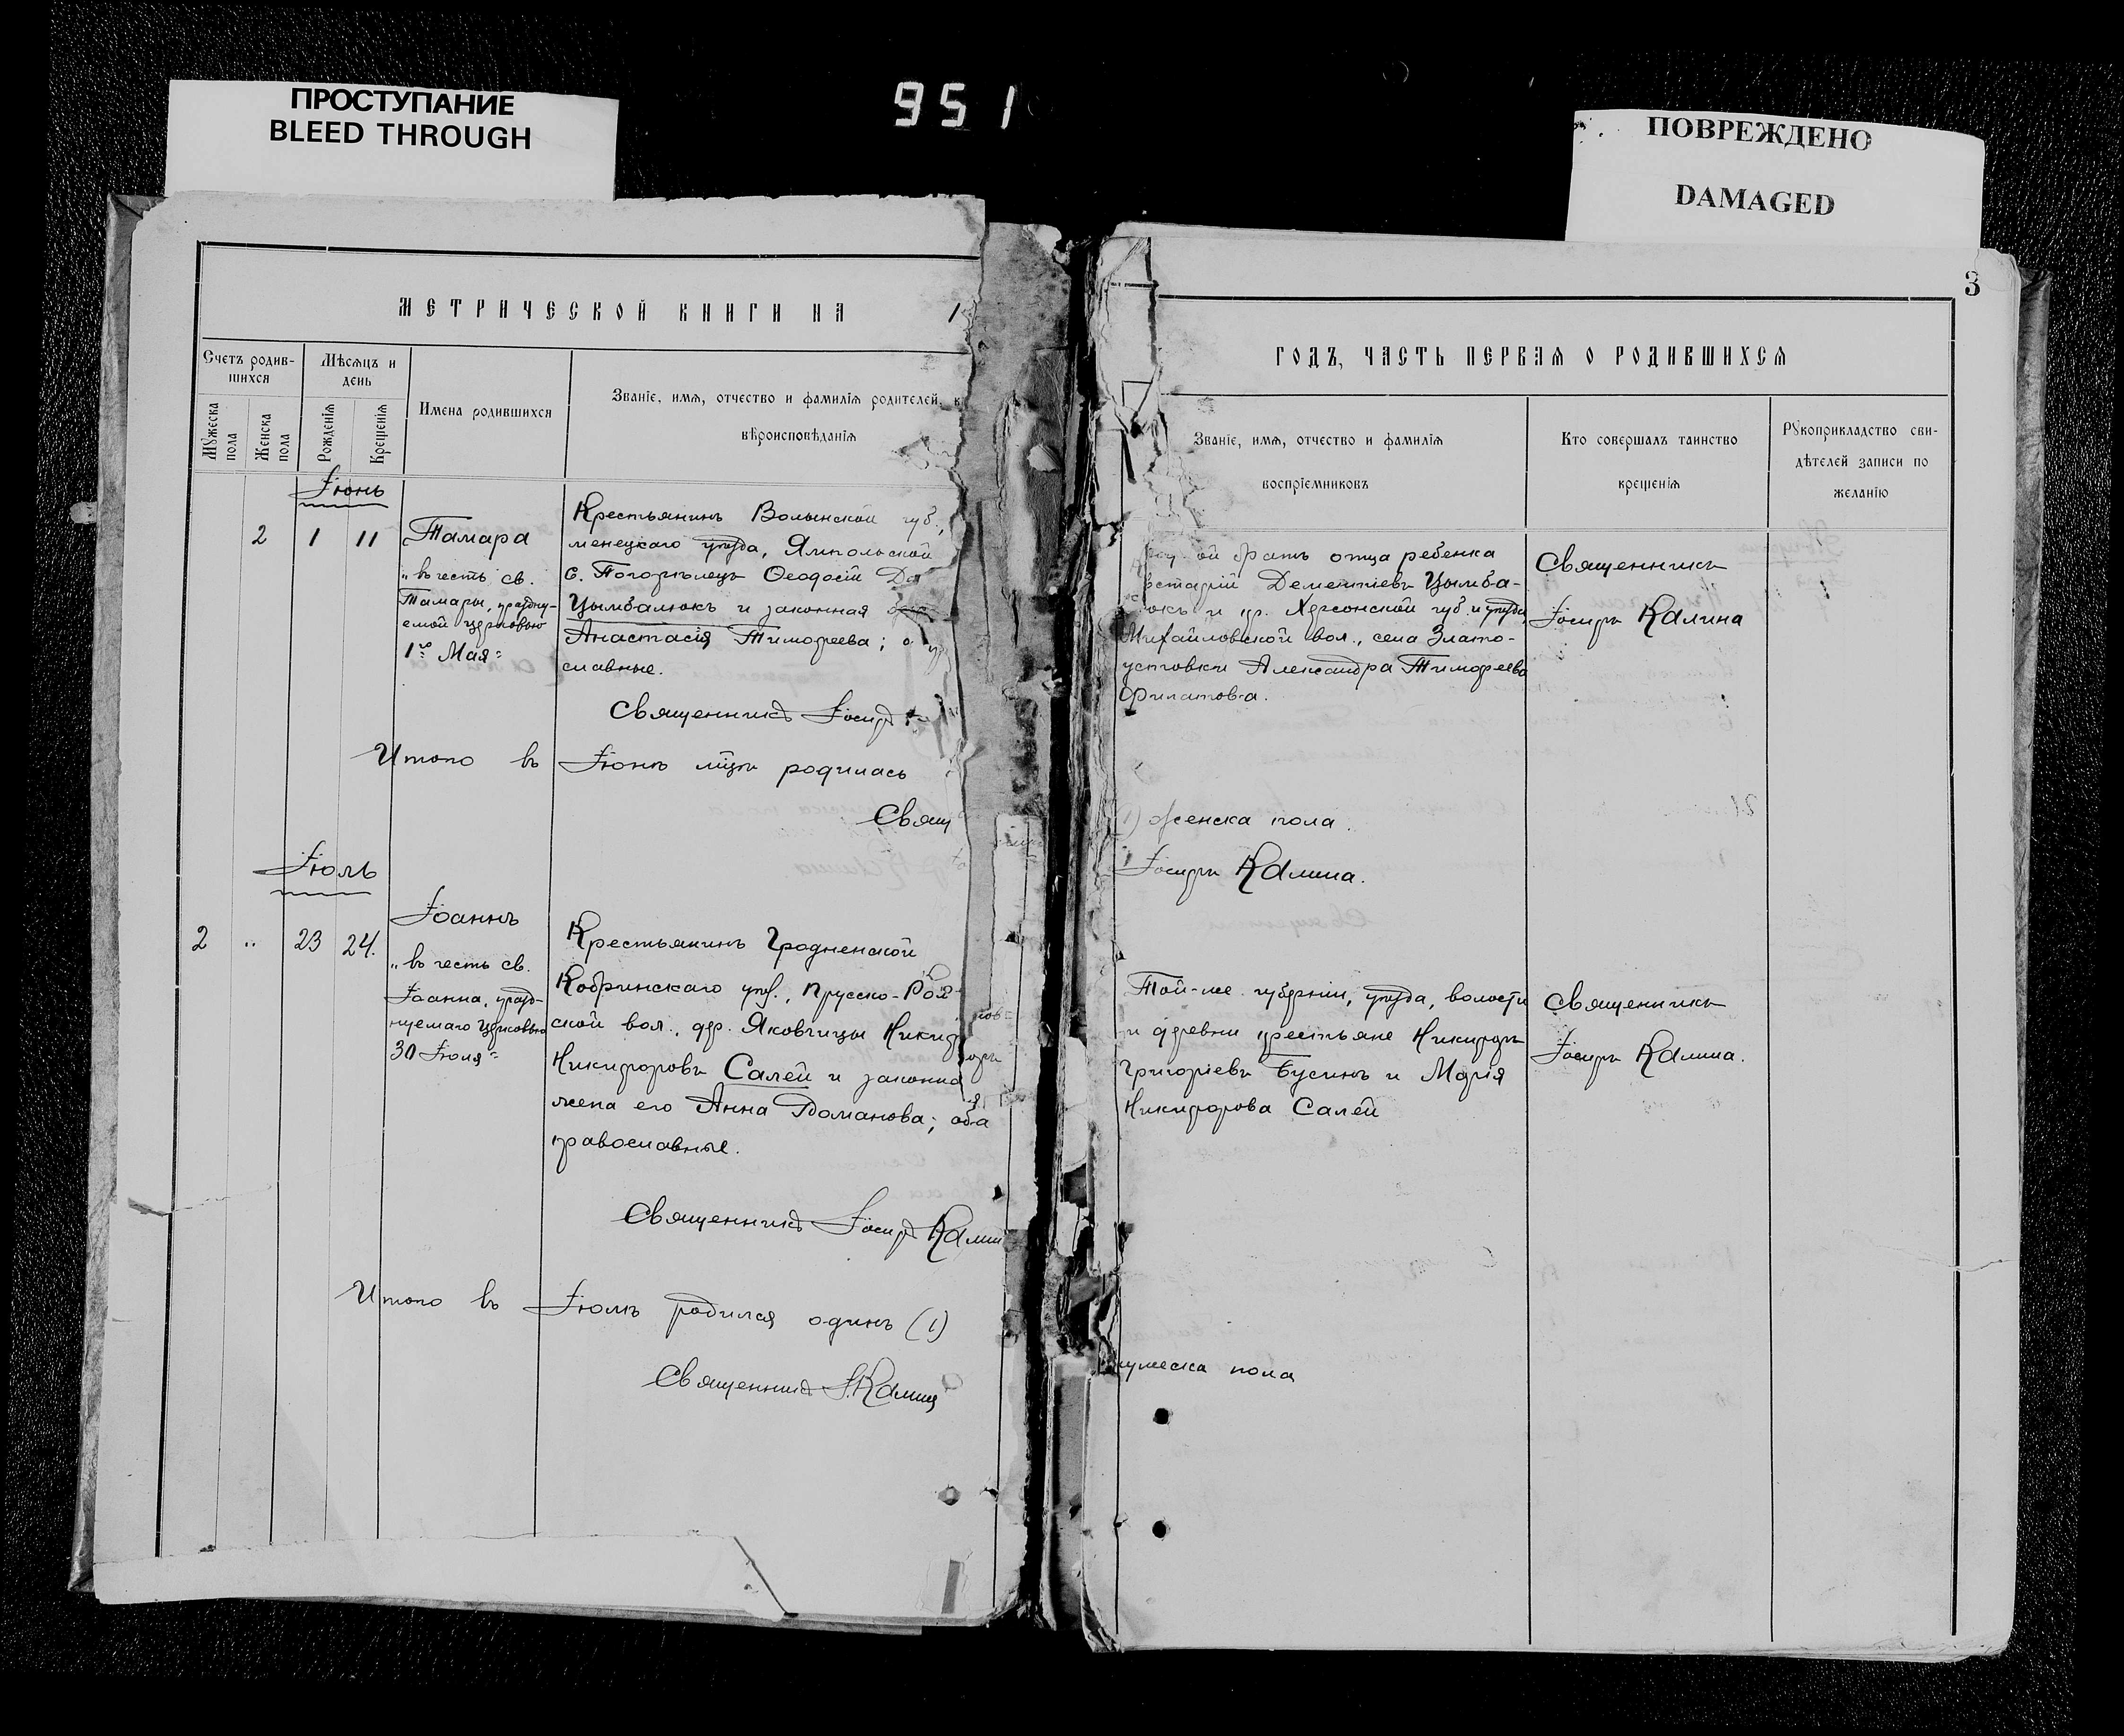 ПРОСТУПАНИЕ
BLEED THROUGH
951
ПОВРЕЖДЕНО
DAMAGED
МЕТРИЧЕСКОЙ КНИГИ НА 1
Счетъ родив-
шихся
Мѣсяцъ и
день
Мужеска
пола
Женска
пола
Рожденія
Крещенія
Имена родившихся
Званіе, имя, отчество и фамилія родителей, к
вѣроисповѣданія
Іюнь
2 1 11
Тамара
„въ честь св.
Тамары, праздну-
емой церковью
1го Мая"
Крестьянинъ Волынской губ.,
менецкаго уѣзда, Ямпольской
с. Погорѣлецъ Ѳеодосій
Цымбалюкъ и законная
Анастасія Тимоѳеева; о
славные.
Священникъ Іосифъ
Итого въ Іюнѣ м-цѣ родилась
Свящ
Іюль
2 „ 23 24.
Іоаннъ
„въ честь св.
Іоанна, празд-
нуемаго церковью
30 Іюля"
Крестьянинъ Гродненской
Кобринскаго уѣз., Прусско-
ской вол., дер. Яковчицы Никифоръ
Никифоровъ Салей и законная
жена его Анна Романова; оба
православные.
Священникъ Іосифъ Калин
Итого въ Іюлѣ родился одинъ (1)
Священникъ І. Калина
3
ГОДЪ, ЧАСТЬ ПЕРВАЯ О РОДИВШИХСЯ
Званіе, имя, отчество и фамилія
воспріемниковъ
Кто совершалъ таинство
крещенія
Рукоприкладство сви-
дѣтелей записи по
желанію
ой братъ отца ребенка
Дементіевъ Цымба-
юкъ и кр. Херсонской губ. и уѣзда,
Михайловской вол., села Злато-
устовки Александра Тимоѳеева
Филатова.
Священникъ
Іосифъ Калина
1) женска пола.
Іосифъ Калина.
Той-же губерніи, уѣзда, волости
и деревни крестьяне Никифоръ
Григоріевъ Бусинъ и Марія
Никифорова Салей
Священникъ
Іосифъ Калина.
мужеска пола